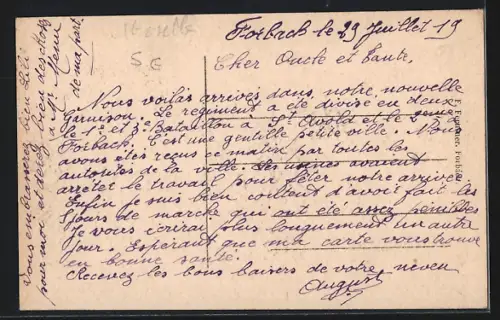 Moselle
S.E
Forbach le 29 Juillet 19
Cher Oncle et Tante,
Nous voilàs arrivés dans notre nouvelle
Garnison. Le regiment a été divisé en deux
le 1er et 3e Bataillon à St Avold et le 2eme
Forbach. C'est une gentille petite ville. Nous
avons étés reçus ce matin par toutes les
autorites de la ville. Les usines avaient
arrêter le travail pour fêter notre arrivée.
Enfin je suis bien content d'avoir fait les
jours de marche qui ont été assez penibles
Je vous ecrirai plus longuement un autre
jour. Esperant que ma carte vous trouve
en bonne santé.
Recevez les bons baisers de votre neveu
August
Vous embrasserez bien Lili
pour moi et direz bien des choses
à Mr
de ma part.
Forbach